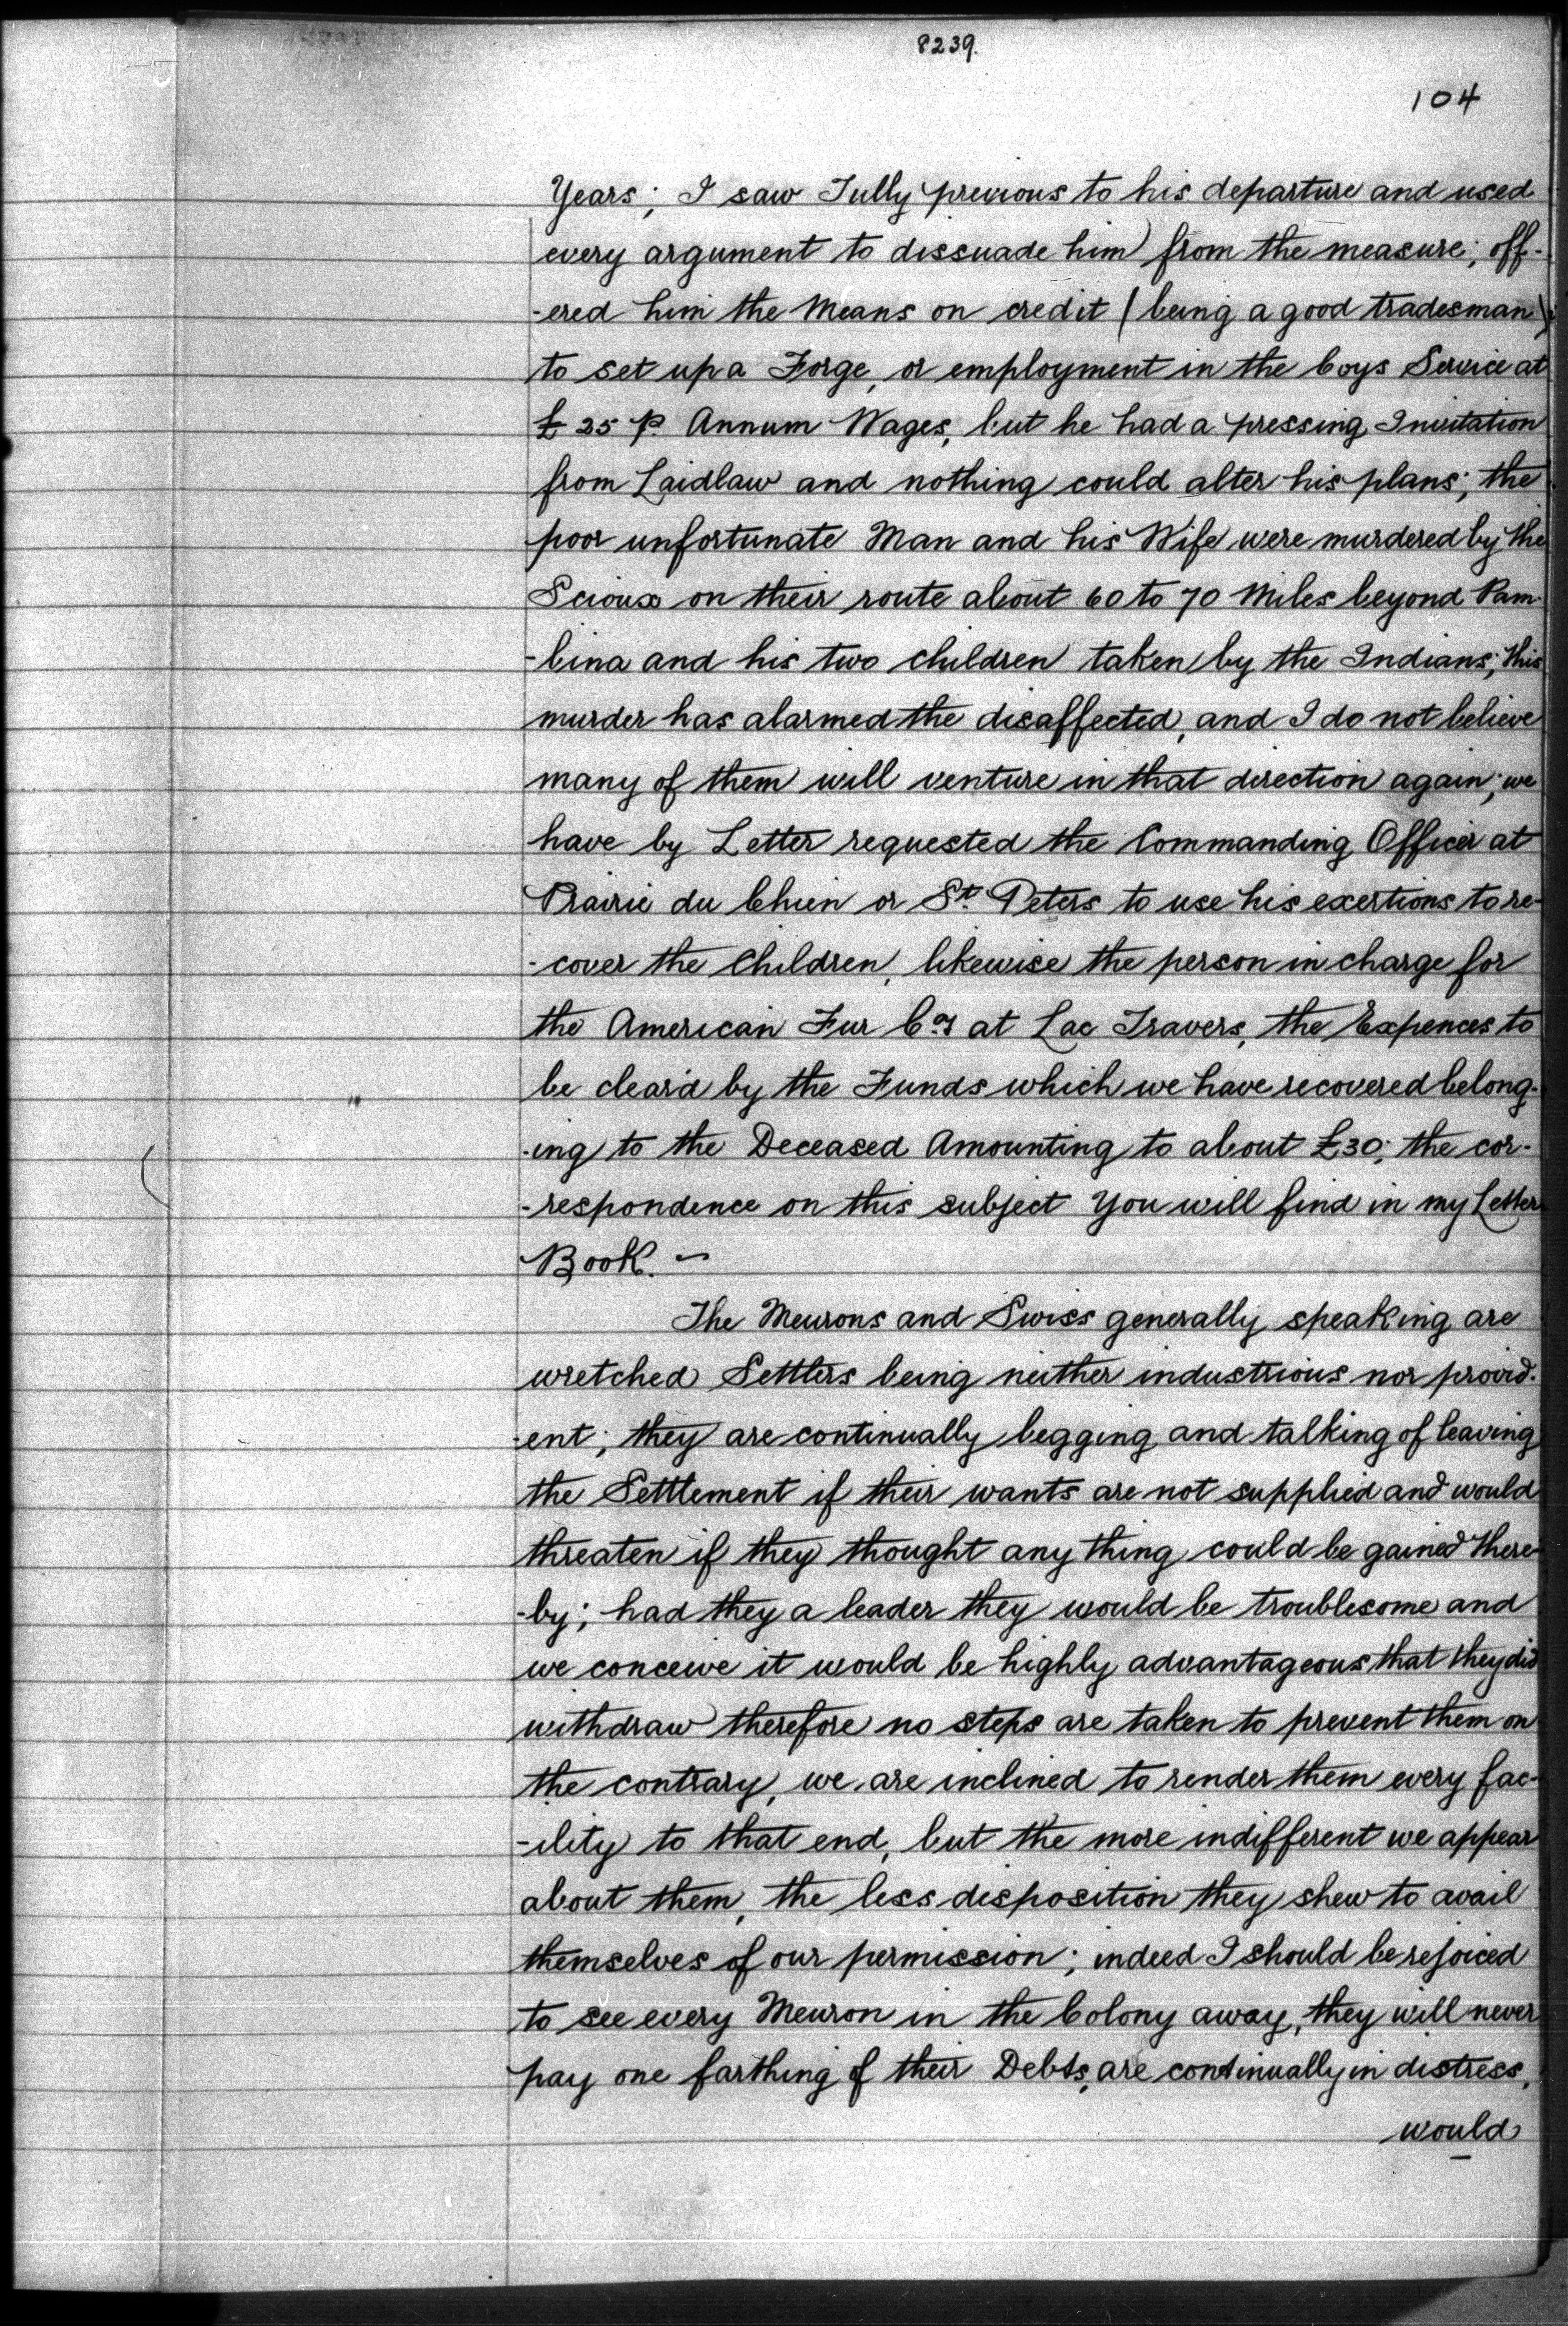 8239.
104
Years; I saw Tully previous to his departure and used
every argument to dissuade him from the measure; off-
-ered him the Means on credit (being a good tradesman)
to set up a Forge, or employment in the Coys Service at
£25 P. Annum Wages, but he had a pressing Invitation
from Laidlaw and nothing could alter his plans; the
poor unfortunate Man and his Wife were murdered by the
Scioux on their route about 60 to 70 Miles beyond Pam-
-bina and his two children taken by the Indians; this
murder has alarmed the disaffected, and I do not believe
many of them will venture in that direction again; we
have by Letter requested the Commanding Officer at
Prairie du Chien or St. Peters to use his exertions to re-
-cover the Children, likewise the person in charge for
the American Fur Coy at Lac Travers, the Expences to
be clear'd by the Funds which we have recovered belong-
-ing to the Deceased Amounting to about £30; the cor-
-respondence on this subject You will find in my Letter
Book. ~
The Meurons and Swiss generally speaking are
wretched Settlers being neither industrious nor provid-
-ent; they are continually begging and talking of leaving
the Settlement if their wants are not supplied and would
threaten if they thought any thing could be gained there-
-by; had they a leader they would be troublesome and
we conceive it would be highly advantageous that they did
withdraw therefore no steps are taken to prevent them on
the contrary, we are inclined to render them every fac-
-ility to that end, but the more indifferent we appear
about them, the less disposition they shew to avail
themselves of our permission; indeed I should be rejoiced
to see every Meuron in the Colony away, they will never
pay one farthing of their Debts, are continually in distress,
would